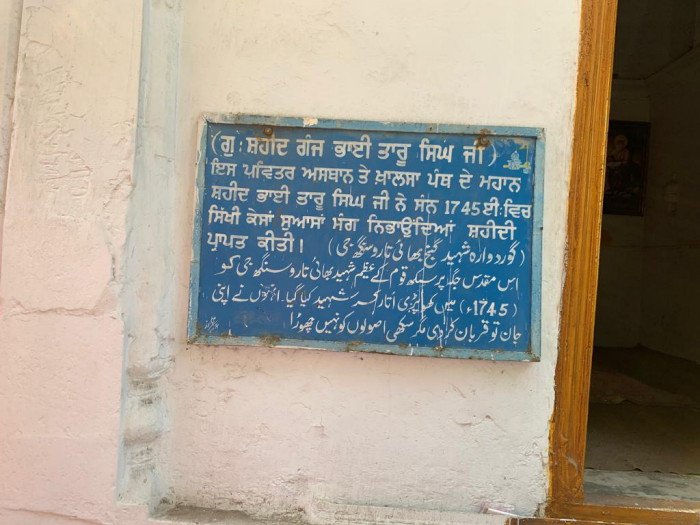 (ਗੁ: ਸ਼ਹੀਦ ਗੰਜ ਭਾਈ ਤਾਰੂ ਸਿੰਘ ਜੀ)
ਇਸ ਪਵਿਤਰ ਅਸਥਾਨ ਤੇ ਖ਼ਾਲਸਾ ਪੰਥ ਦੇ ਮਹਾਨ
ਸ਼ਹੀਦ ਭਾਈ ਤਾਰੂ ਸਿੰਘ ਜੀ ਨੇ ਸੰਨ 1745 ਈ: ਵਿਚ
ਸਿੱਖੀ ਕੇਸਾਂ ਸੁਆਸਾਂ ਸੰਗ ਨਿਭਾਉਂਦਿਆਂ ਸ਼ਹੀਦੀ
ਪ੍ਰਾਪਤ ਕੀਤੀ।
(گوردوارہ شہید گنج بھائی تاروسنگھ جی)
اس مقدس جگہ پر سکھ قوم کے عظیم شہید بھائی تاروسنگھ جی کو
(1745ء) میں کھوپڑی اتار کر شہید کیا گیا۔ انہوں نے اپنی
جان تو قربان کر دی مگر سکھی اصولوں کو نہیں چھوڑا